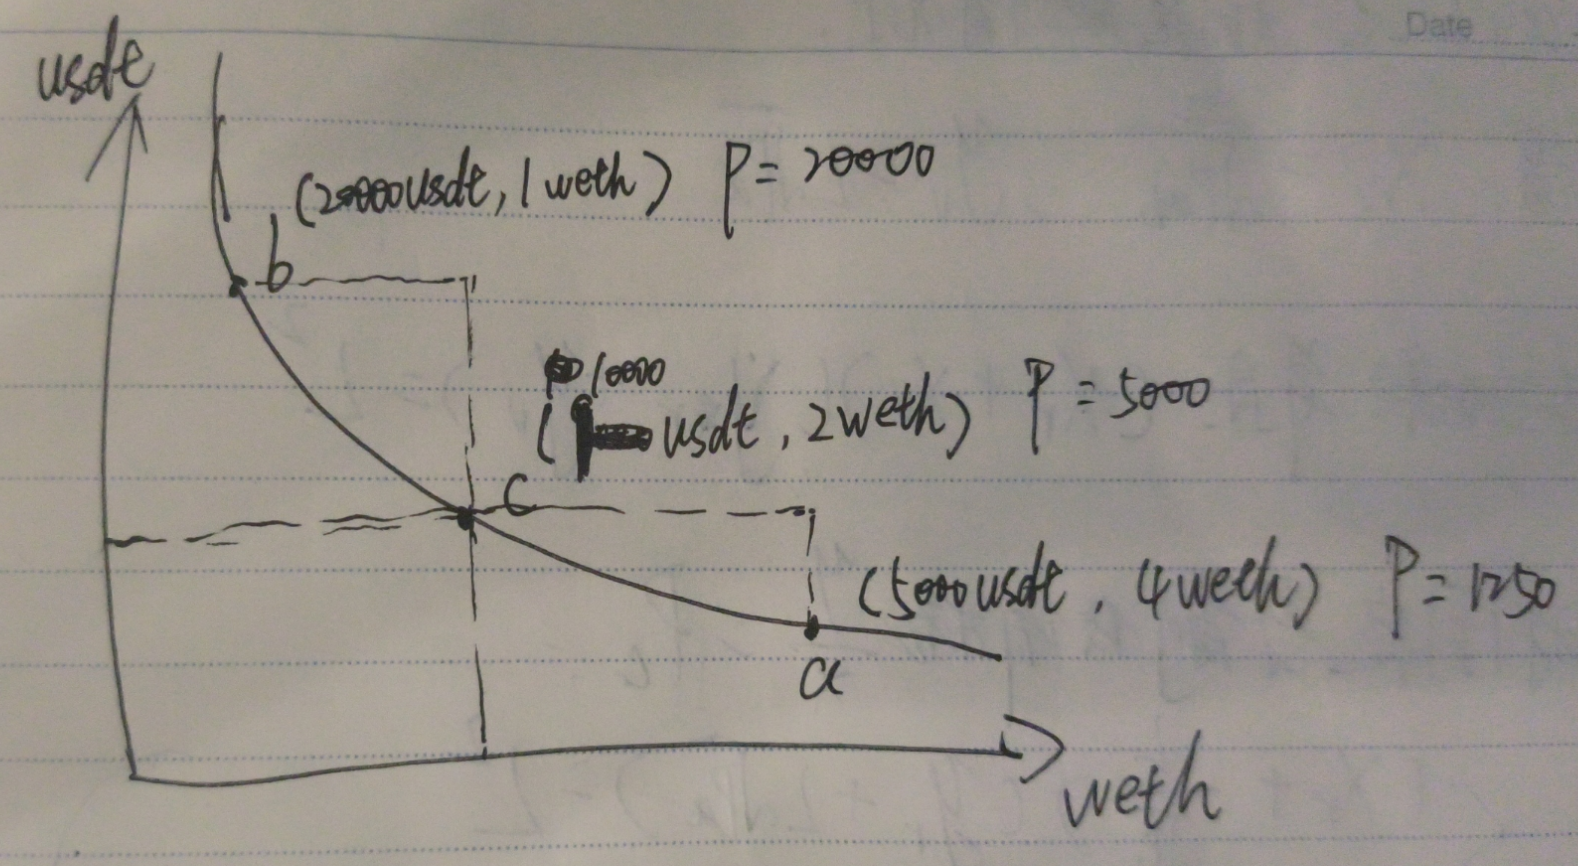 Date
usdt
(20000usdt, 1 weth) P = 20000
b
10000
( usdt, 2weth) P = 5000
c
(5000usdt, 4weth) P = 1250
a
weth